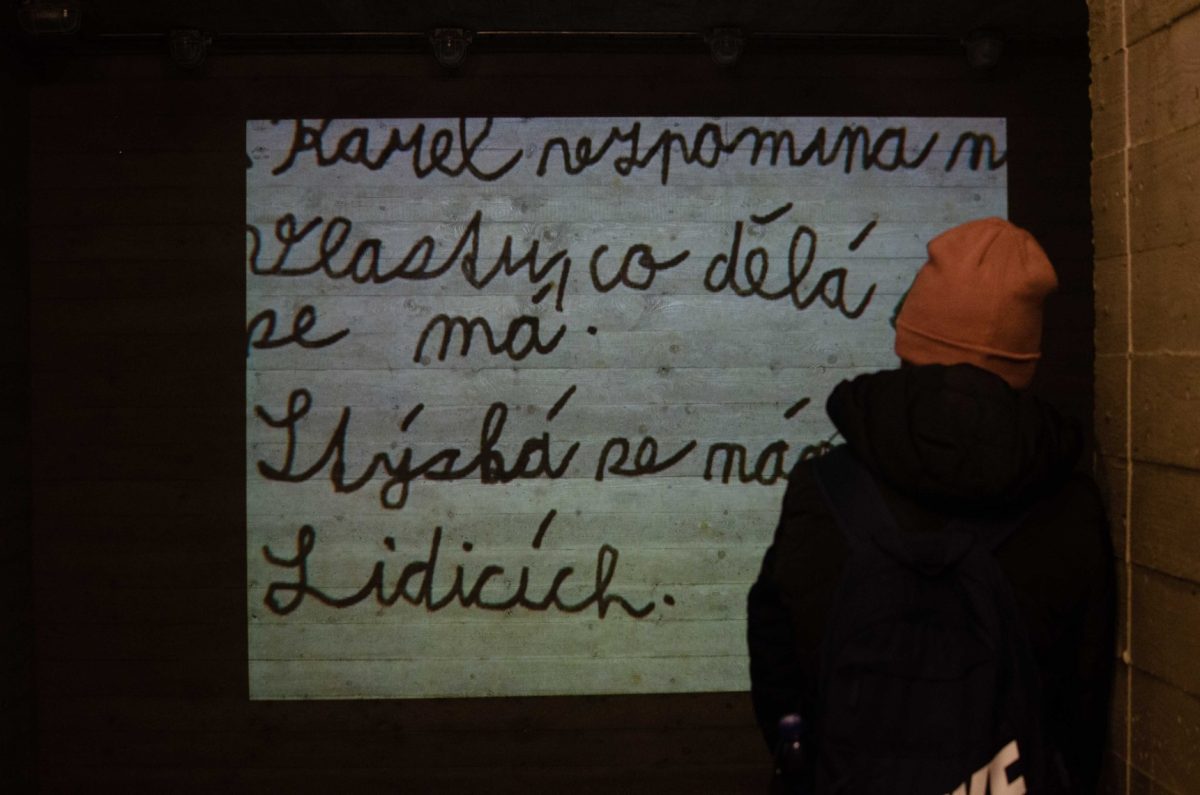 Karel vezpomíná n
Vlastu, co dělá
se má.
Stýská se nám
Lidicích.